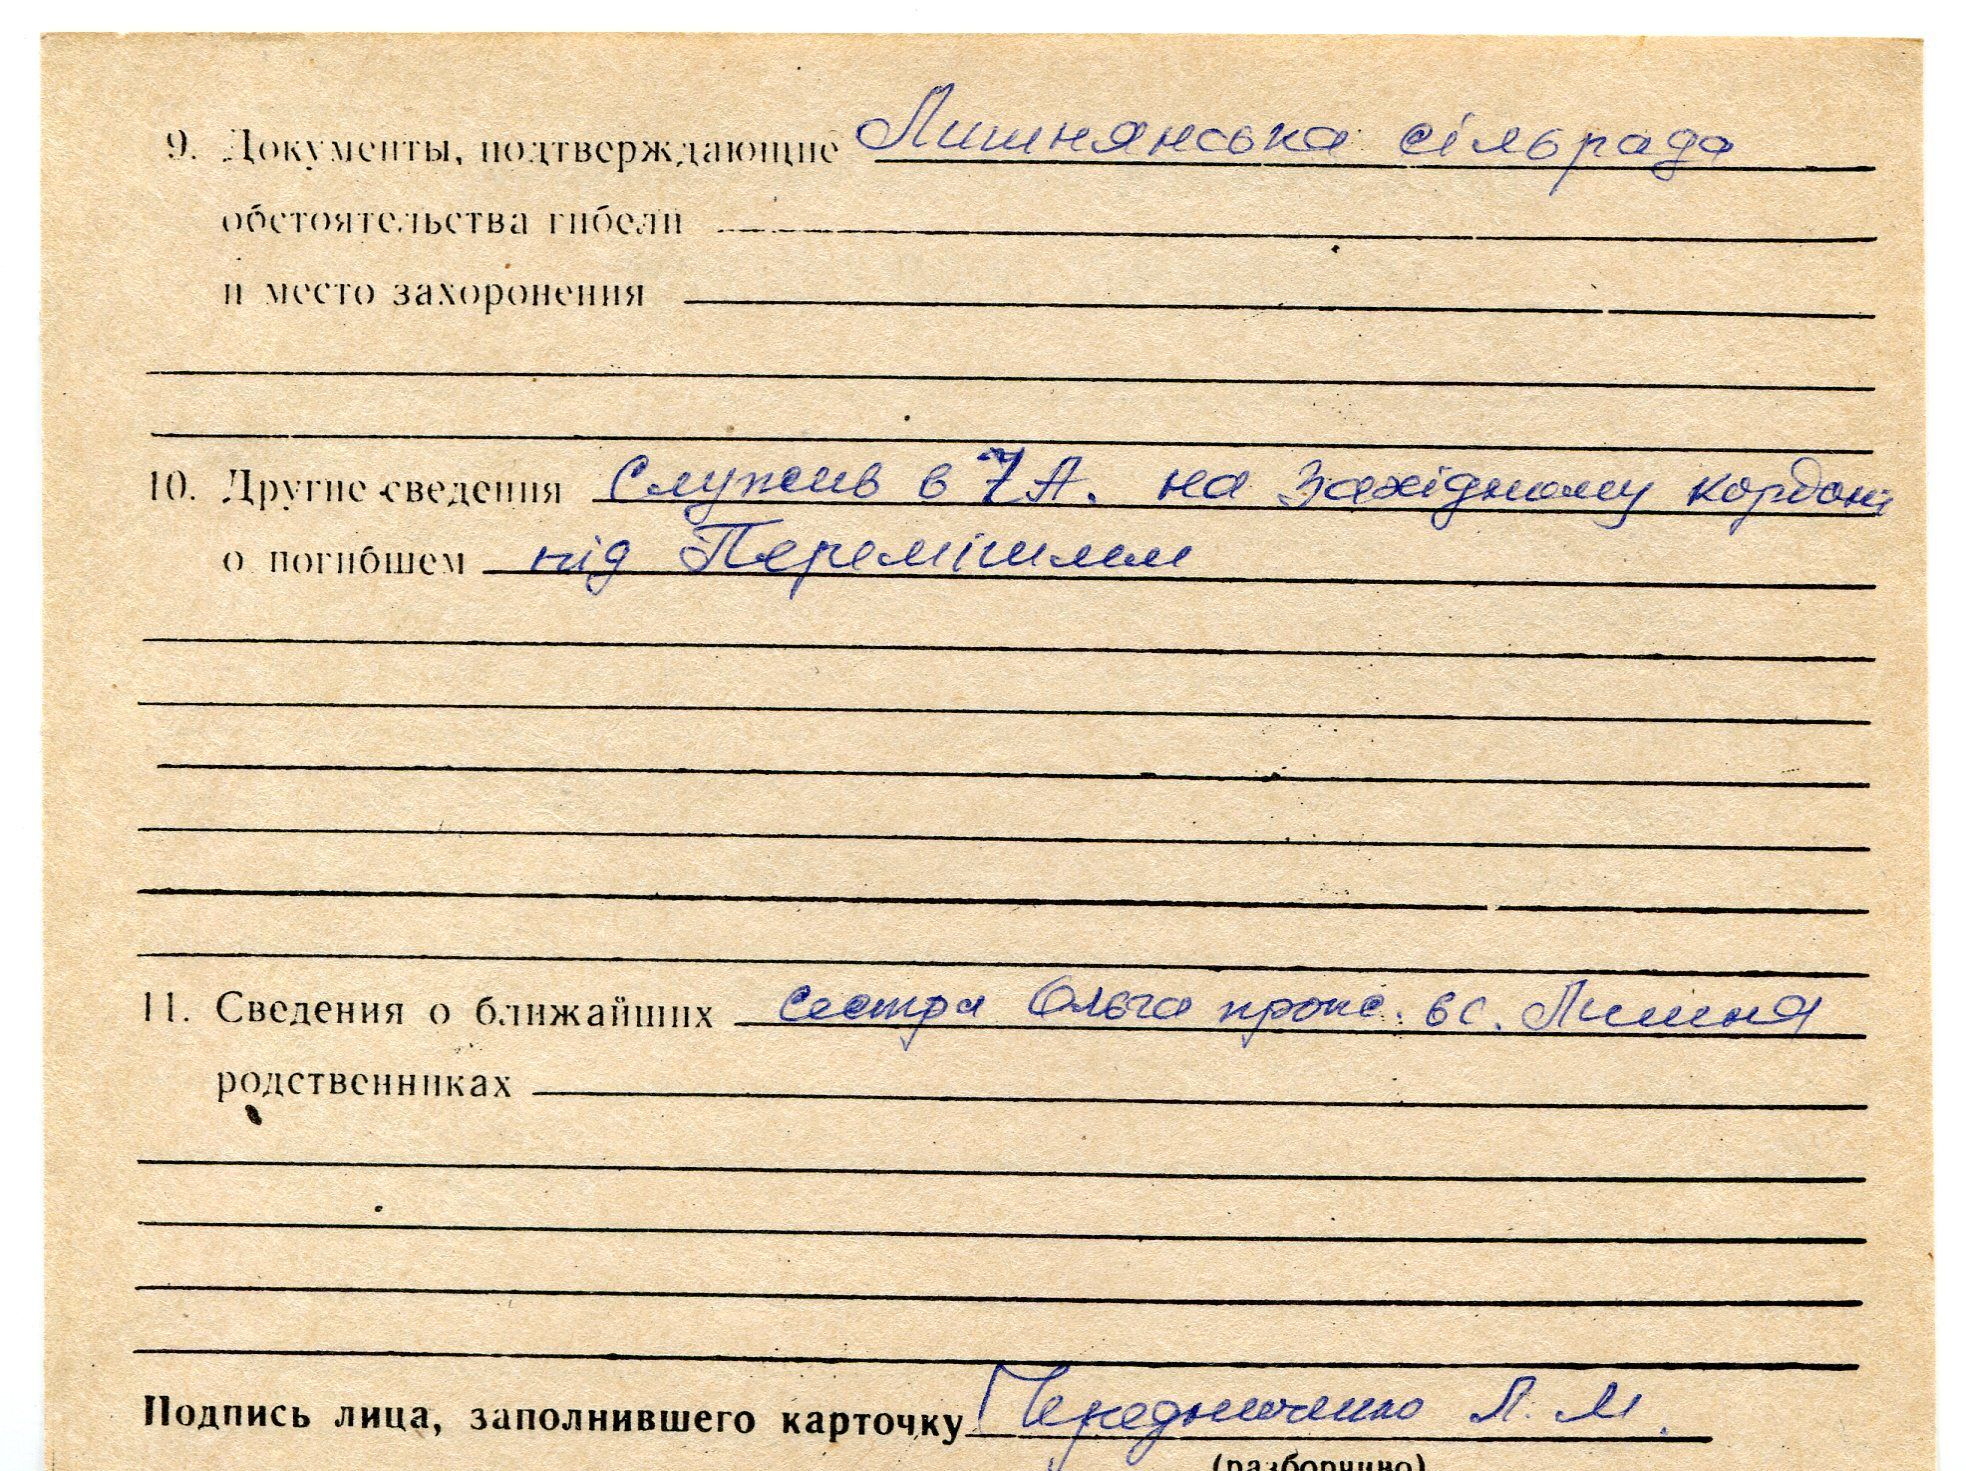 9. Документы, подтверждающие Лишнянська сільрада
обстоятельства гибели
и место захоронения
10. Другие сведения Служив в 7 А. на Західному кордоні
о погибшем під Перемишлем
11. Сведения о ближайших сестра Ольга прож. в с. Лишня
родственниках
Подпись лица, заполнившего карточку Чередниченко Л. М.
(разборчиво)